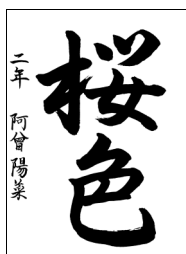 桜色
二年 阿曽陽菜